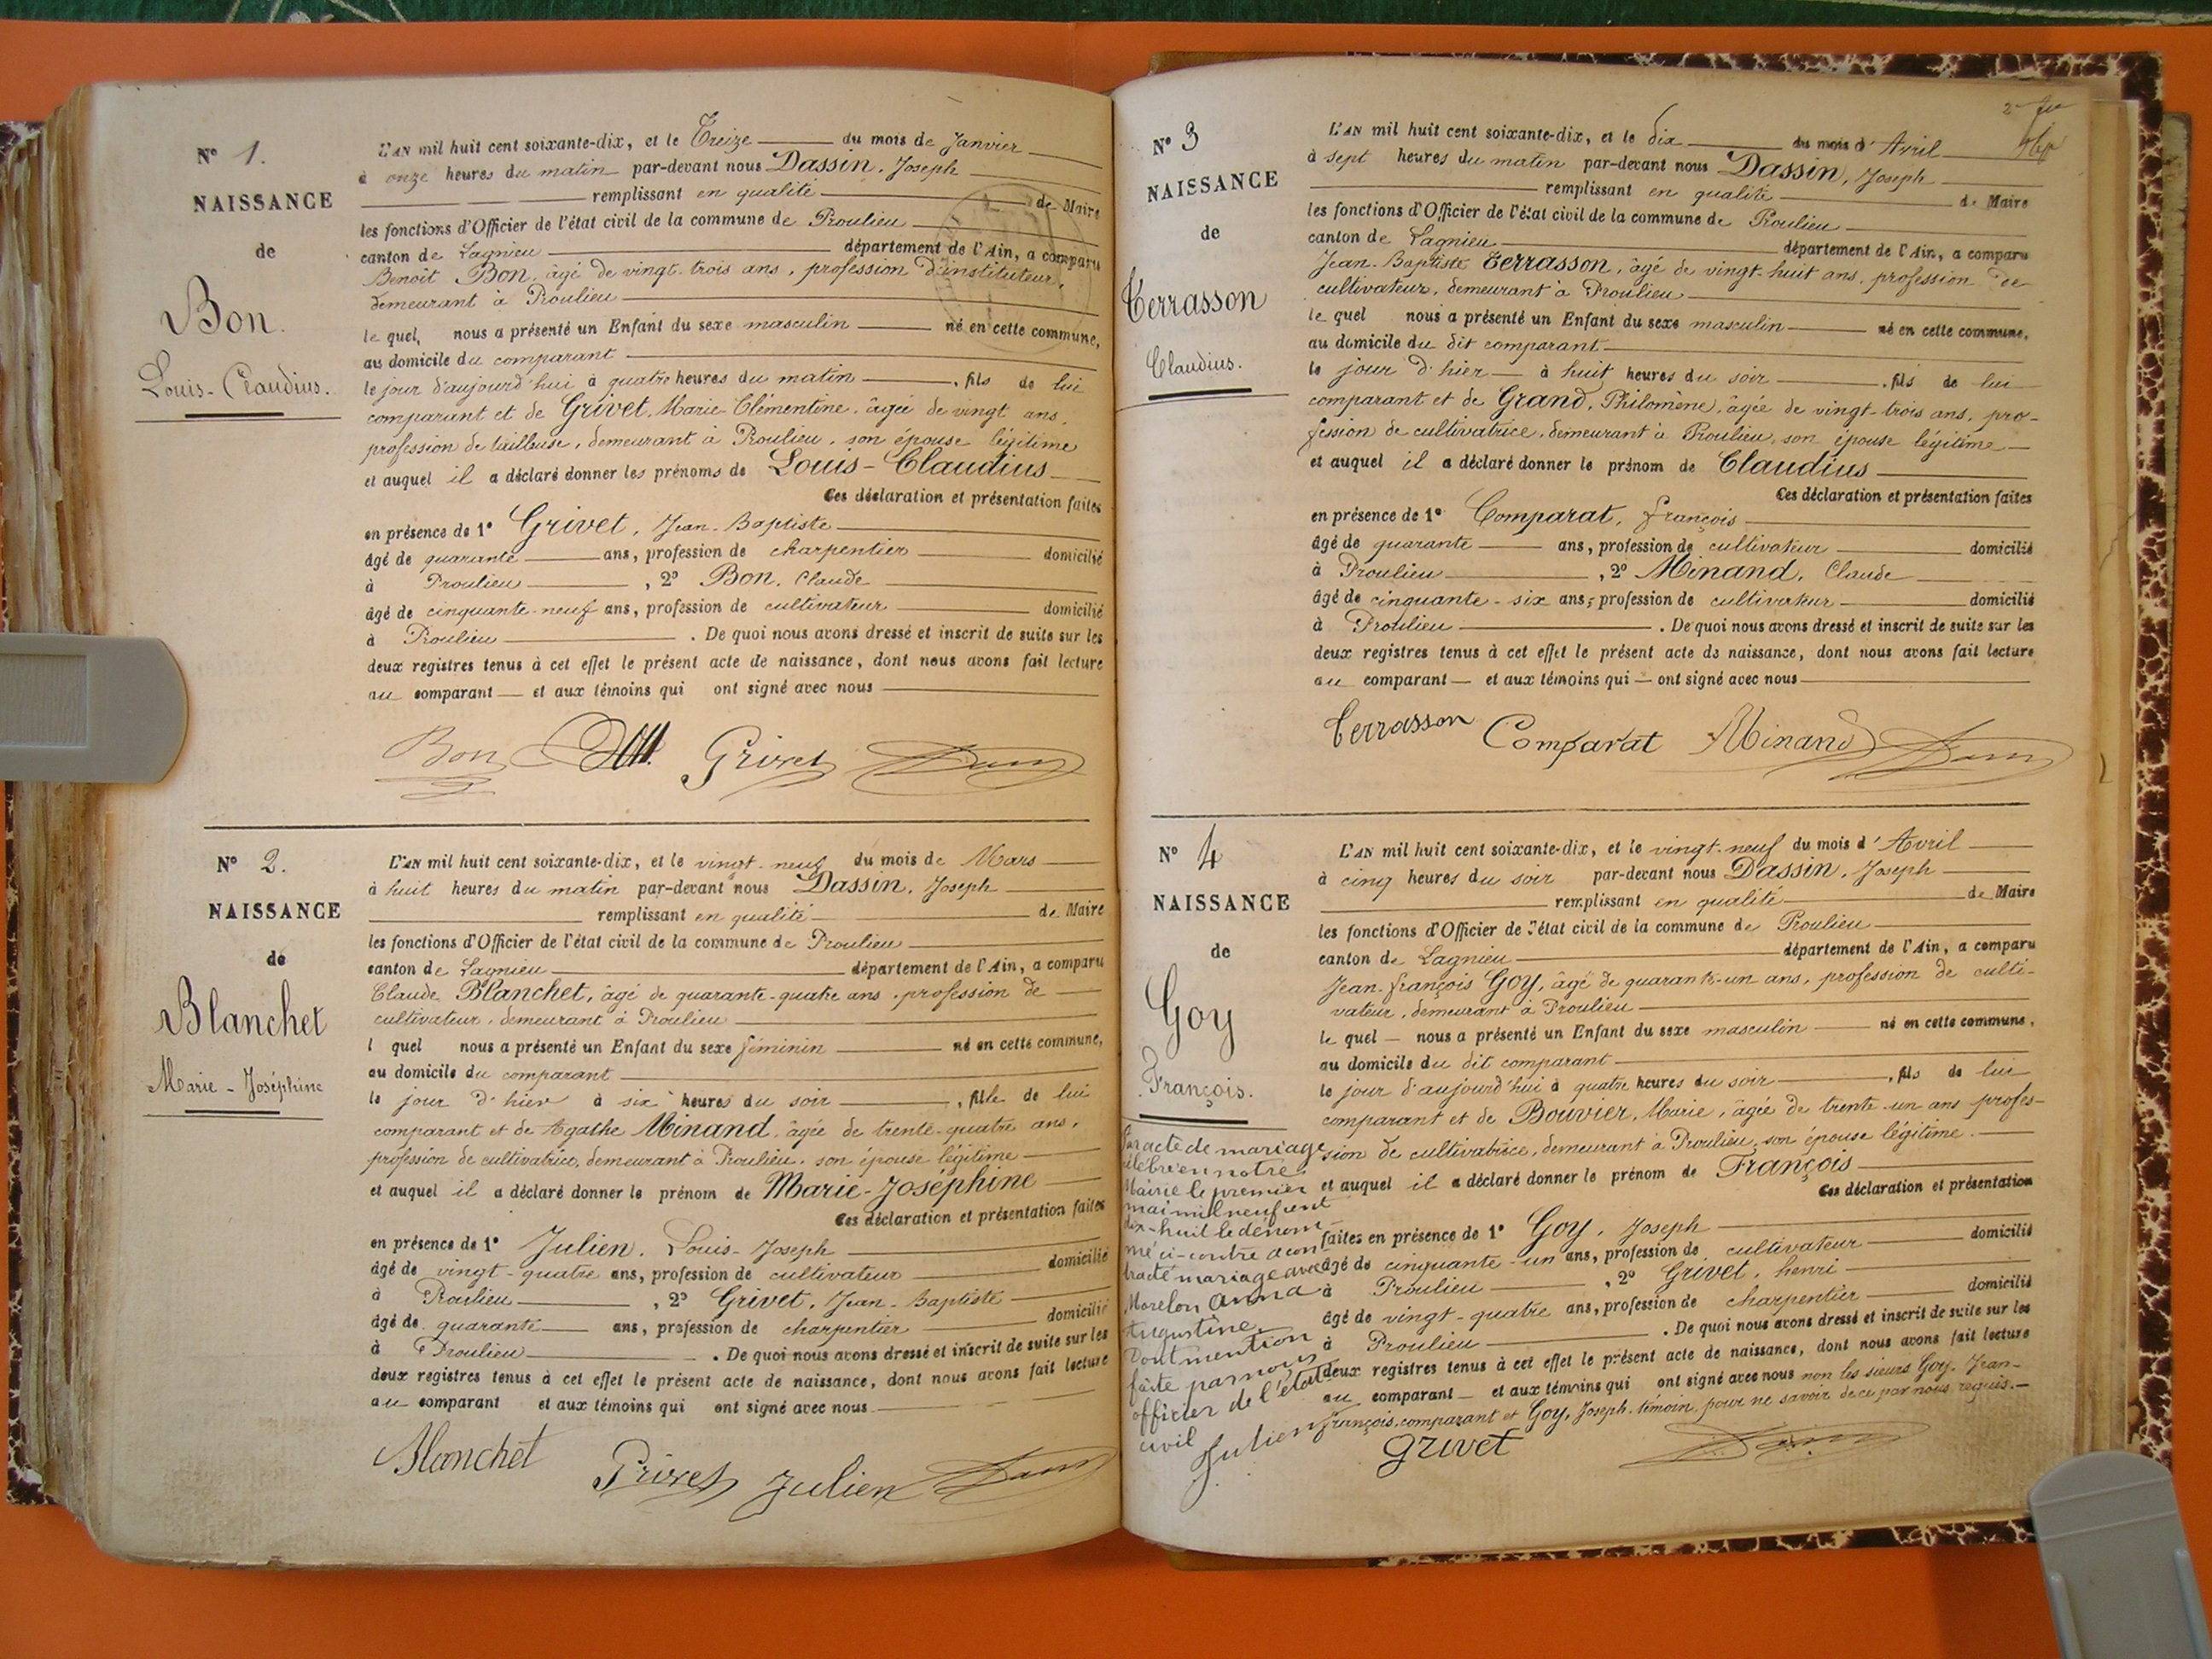 N° 1.
NAISSANCE
de
Bon.
Louis-Claudius.
L'AN mil huit cent soixante-dix, et le Treize du mois de Janvier
à onze heures du matin par-devant nous Dassin, Joseph
remplissant en qualité de Maire
les fonctions d'Officier de l'état civil de la commune de Proulieu
canton de Lagnieu département de l'Ain, a comparu
Benoît Bon, âgé de vingt-trois ans, profession d'instituteur,
demeurant à Proulieu
le quel, nous a présenté un Enfant du sexe masculin né en cette commune,
au domicile du comparant
le jour d'aujourd'hui à quatre heures du matin , fils de lui
comparant et de Grivet, Marie Clémentine, âgée de vingt ans,
profession de tailleuse, demeurant à Proulieu, son épouse légitime
et auquel il a déclaré donner les prénoms de Louis-Claudius
Ces déclaration et présentation faites
en présence de 1° Grivet, Jean-Baptiste
âgé de quarante ans, profession de charpentier domicilié
à Proulieu , 2° Bon, Claude
âgé de cinquante-neuf ans, profession de cultivateur domicilié
à Proulieu . De quoi nous avons dressé et inscrit de suite sur les
deux registres tenus à cet effet le présent acte de naissance, dont nous avons fait lecture
au comparant et aux témoins qui ont signé avec nous
Bon Grivet
N° 2.
NAISSANCE
de
Blanchet
Marie-Joséphine
L'AN mil huit cent soixante-dix, et le vingt-neuf du mois de Mars
à huit heures du matin par-devant nous Dassin, Joseph
remplissant en qualité de Maire
les fonctions d'Officier de l'état civil de la commune de Proulieu
canton de Lagnieu département de l'Ain, a comparu
Claude Blanchet, âgé de quarante-quatre ans, profession de
cultivateur, demeurant à Proulieu
l quel nous a présenté un Enfant du sexe féminin né en cette commune,
au domicile du comparant
le jour d'hier à six heures du soir , fille de lui
comparant et de Agathe Minand, âgée de trente-quatre ans,
profession de cultivatrice, demeurant à Proulieu, son épouse légitime
et auquel il a déclaré donner le prénom de Marie-Joséphine
Ces déclaration et présentation faites
en présence de 1° Julien, Louis-Joseph
âgé de vingt-quatre ans, profession de cultivateur domicilié
à Proulieu , 2° Grivet, Jean-Baptiste
âgé de quarante ans, profession de charpentier domicilié
à Proulieu . De quoi nous avons dressé et inscrit de suite sur les
deux registres tenus à cet effet le présent acte de naissance, dont nous avons fait lecture
au comparant et aux témoins qui ont signé avec nous
Blanchet Grivet Julien
N° 3
NAISSANCE
de
Terrasson
Claudius.
L'AN mil huit cent soixante-dix, et le dix du mois d'Avril
à sept heures du matin par-devant nous Dassin, Joseph
remplissant en qualité de Maire
les fonctions d'Officier de l'état civil de la commune de Proulieu
canton de Lagnieu département de l'Ain, a comparu
Jean-Baptiste Terrasson, âgé de vingt-huit ans, profession de
cultivateur, demeurant à Proulieu
le quel nous a présenté un Enfant du sexe masculin né en cette commune,
au domicile du dit comparant
le jour d'hier à huit heures du soir , fils de lui
comparant et de Grand, Philomène, âgée de vingt-trois ans, pro-
fession de cultivatrice, demeurant à Proulieu, son épouse légitime
et auquel il a déclaré donner le prénom de Claudius
Ces déclaration et présentation faites
en présence de 1° Comparat, françois
âgé de quarante ans, profession de cultivateur domicilié
à Proulieu , 2° Minand, Claude
âgé de cinquante-six ans, profession de cultivateur domicilié
à Proulieu . De quoi nous avons dressé et inscrit de suite sur les
deux registres tenus à cet effet le présent acte de naissance, dont nous avons fait lecture
au comparant et aux témoins qui ont signé avec nous
Terrasson Comparat Minand
N° 4
NAISSANCE
de
Goy
François.
Par acte de mariage
célébré en notre
Mairie le premier
mai mil neuf cent
dix-huit le dénom-
mé ci-contre a con-
tracté mariage avec
Morelon Anna
Augustine.
Dont mention
faite par nous
officier de l'état
civil
Julien
L'AN mil huit cent soixante-dix, et le vingt-neuf du mois d'Avril
à cinq heures du soir par-devant nous Dassin, Joseph
remplissant en qualité de Maire
les fonctions d'Officier de l'état civil de la commune de Proulieu
canton de Lagnieu département de l'Ain, a comparu
Jean-françois Goy, âgé de quarante-un ans, profession de culti-
vateur, demeurant à Proulieu
le quel nous a présenté un Enfant du sexe masculin né en cette commune,
au domicile du dit comparant
le jour d'aujourd'hui à quatre heures du soir , fils de lui
comparant et de Bouvier, Marie, âgée de trente-un ans profes-
sion de cultivatrice, demeurant à Proulieu, son épouse légitime.
et auquel il a déclaré donner le prénom de François
Ces déclaration et présentation
faites en présence de 1° Goy, Joseph
âgé de cinquante-un ans, profession de cultivateur domicilié
à Proulieu , 2° Grivet, henri
âgé de vingt-quatre ans, profession de charpentier domicilié
à Proulieu . De quoi nous avons dressé et inscrit de suite sur les
deux registres tenus à cet effet le présent acte de naissance, dont nous avons fait lecture
au comparant et aux témoins qui ont signé avec nous non les sieurs Goy, Jean-
françois, comparant et Goy, Joseph, témoin, pour ne savoir de ce par nous requis.
Grivet